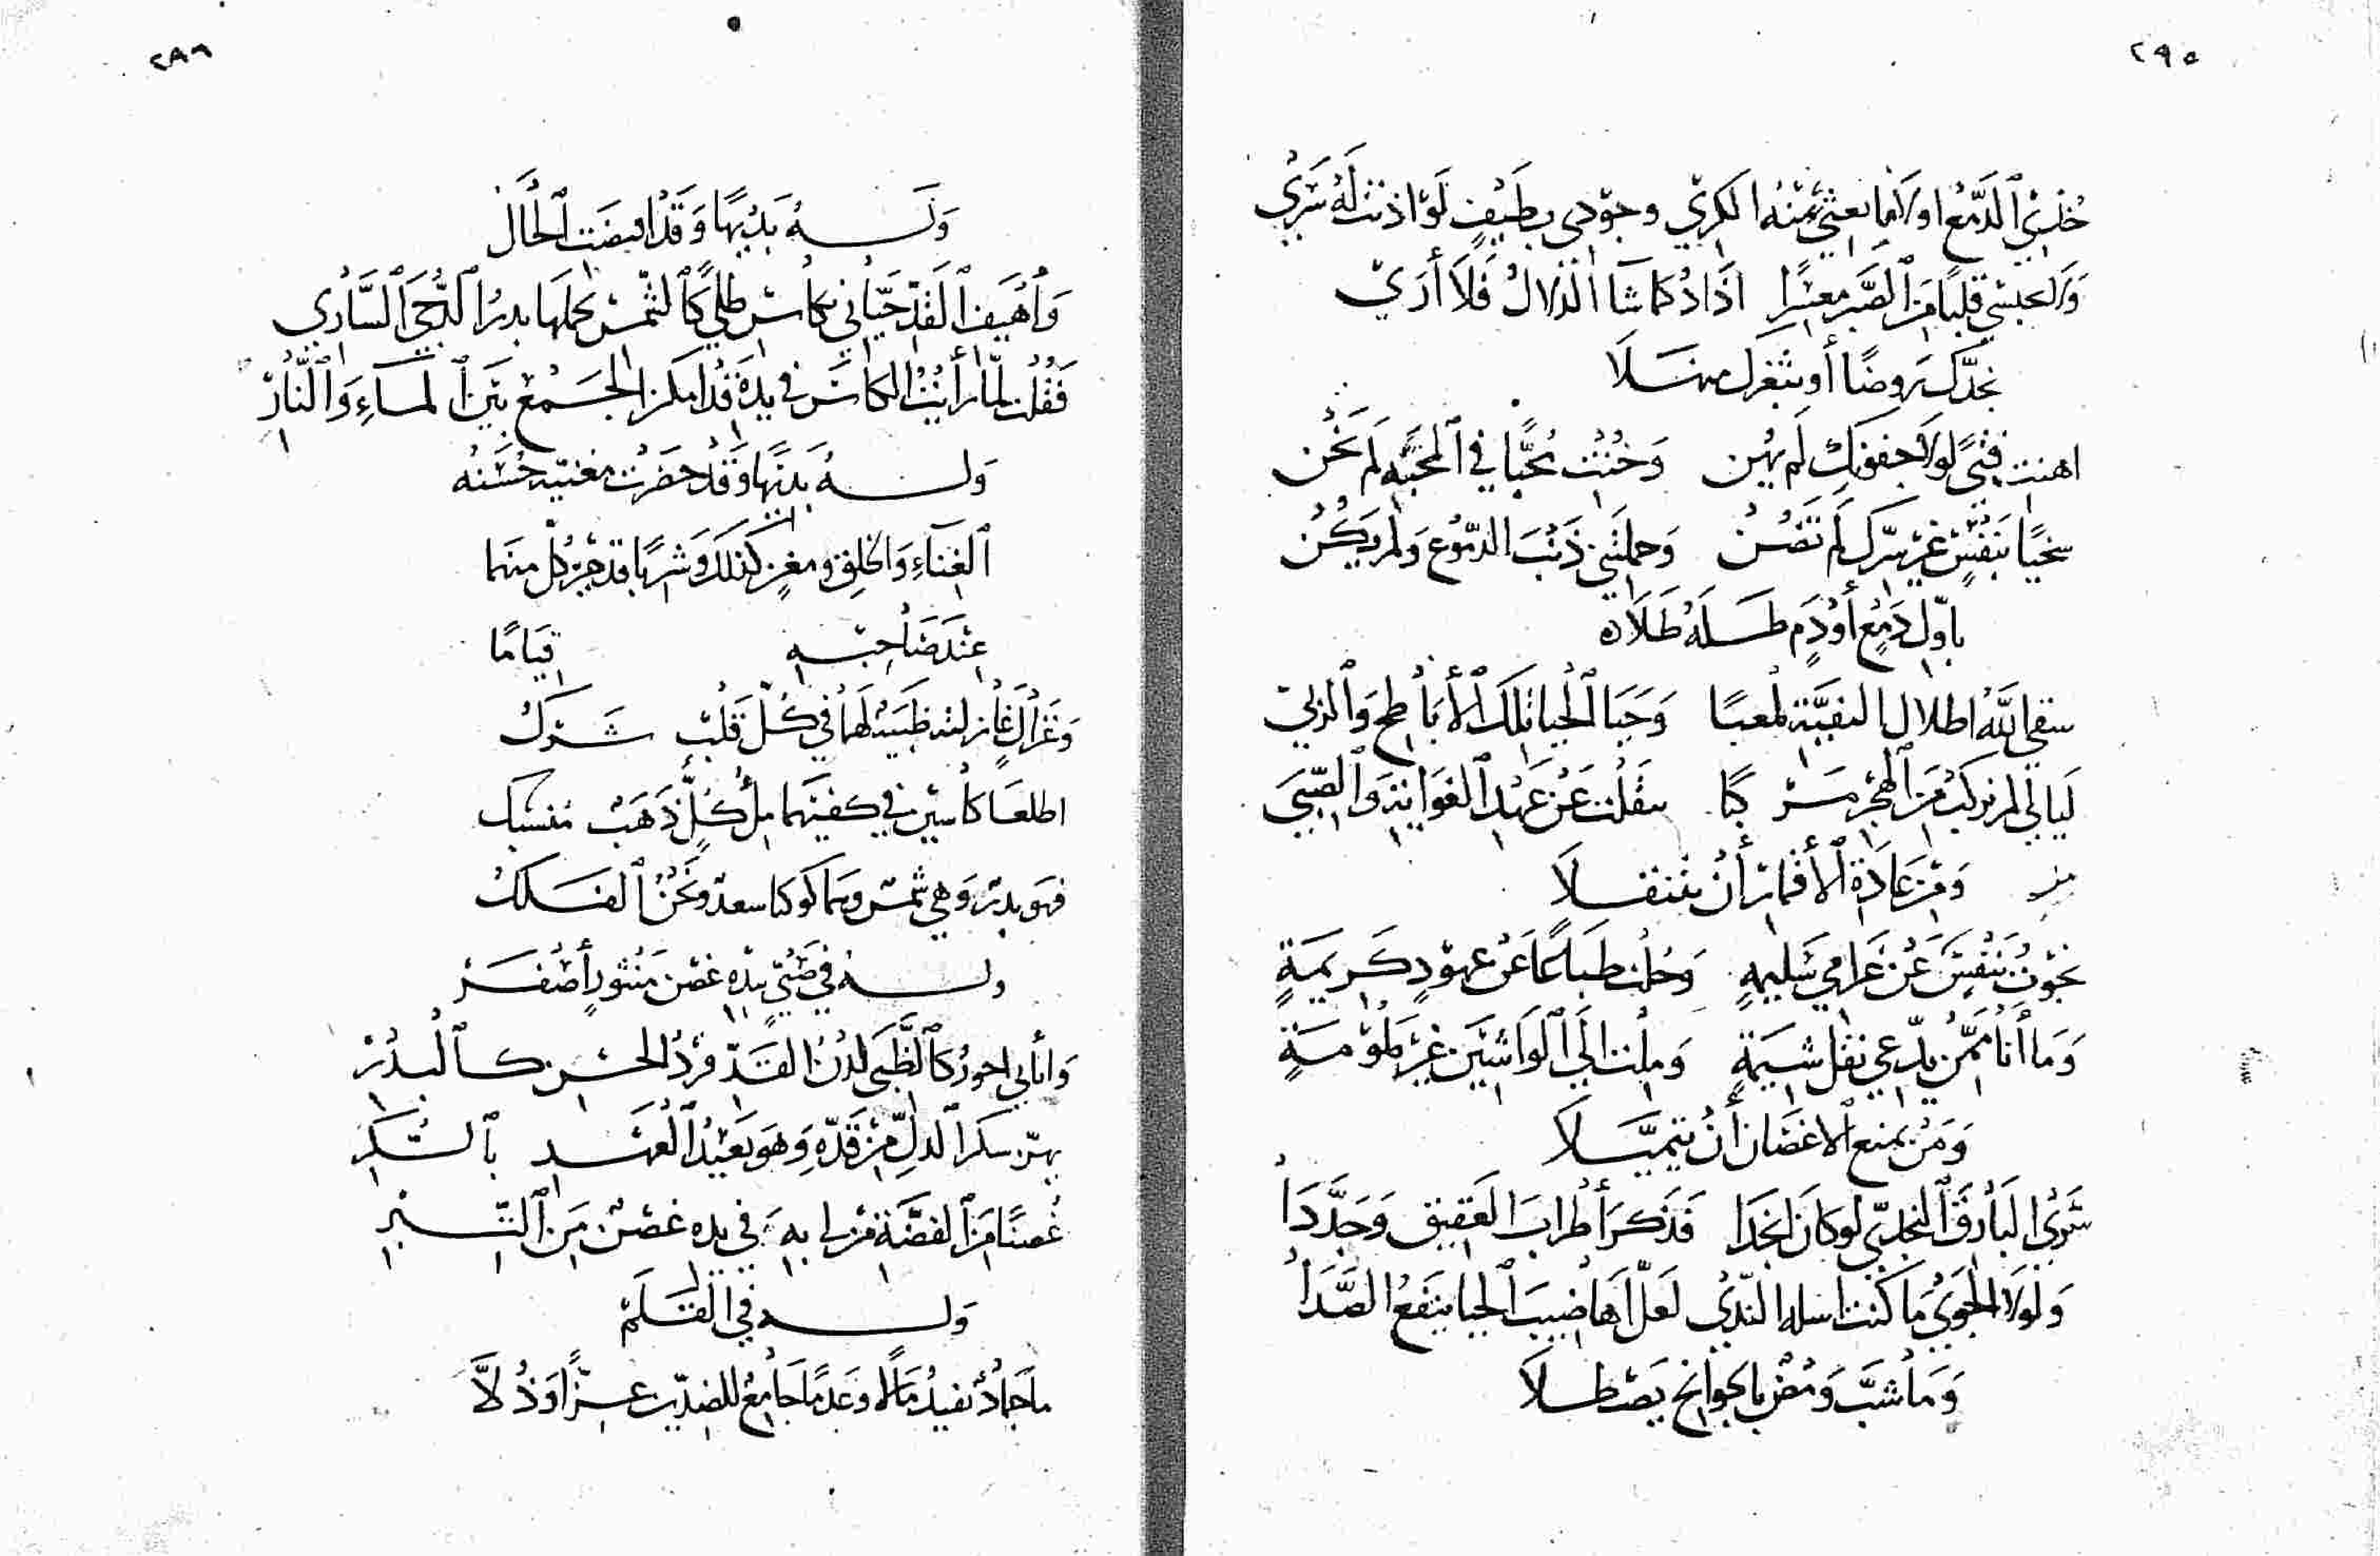 ٢٩٥
خذي الدمع اولا فابعثي منه الكرى وجودي بطيف لو اذنت له سرى
ولا تحبسي قلبًا من الصبر معسرا اذا ذكما شا الدلال فلا أرى
بخدّك روضًا أو بثغرك منهلا
اهنت فتىً لولا جفونك لم يهن وخُنت محبًّا في المحبّه لم يخن
سخيًا بنفس غير سرّك لم تصن وحملتني ذنب الدموع ولم يكن
باوّل دمع أو دم طله طلاه
سقى الله اطلال النقيبة ملعبًا وحيا الحيا تلك الأباطح والربى
ليالي لم نركب من الهجر مركبًا نقلت عن عهد الغوايه والصبى
ومن عادة الأقمار أن تتنقلا
نحوت بنفس عن غرامي سليمه وحلت طباعًا عن عهود كريمة
وما أنا ممّن يدّعي نقل شيمة وملت الى الواشين غير ملومة
ومن يمنع الاغصان أن تتميّلا
سرى البارق النجدي لو كان انجدا فذكر أطراب العقيق وجدّدا
ولولا الجوى ما كنت اسله الندى لعلّ اهاضيب الحيا ينقع الصّدا
وما شبّ ومض بالجوانح يصطلا
٢٩٦
وله بديهًا وقد اقتضت الحال
وأهيف القد حيّاني بكأس طلى كالشمس يحملها بدر الدجى الساري
فقلت لمّا رأيت الكأس في يده قد امكن الجمع بين الماء والنار
وله بديهًا وقد حضرت مغنيه حسنه
الغناء والخلق ومغن كذلك وشربا قدحين كل منهما
عند صاحبه قيامًا
وغزال غازلته ظبية لهما في كلّ قلب شرك
اطلعا كأسين في كفيهما ملْ كلّ ذهب منسبك
فهو بدر وهي شمس وهما كوكبا سعد ونحن الفلك
وله في صبيّ بيده غصن منثور أصفر
وا بأبي احور كالظبى لدن القدّ فرد الحسن كالبدر
يهتز سكر الدلّ من قدّه وهو بعيد العهد بالسكر
غصنًا من الفضّة من لي به في يده غصن من التبر
وله في القلم
ما جماد يفيد مالا وعدمًا جامع للضدّين عزًّا وذلاًّ